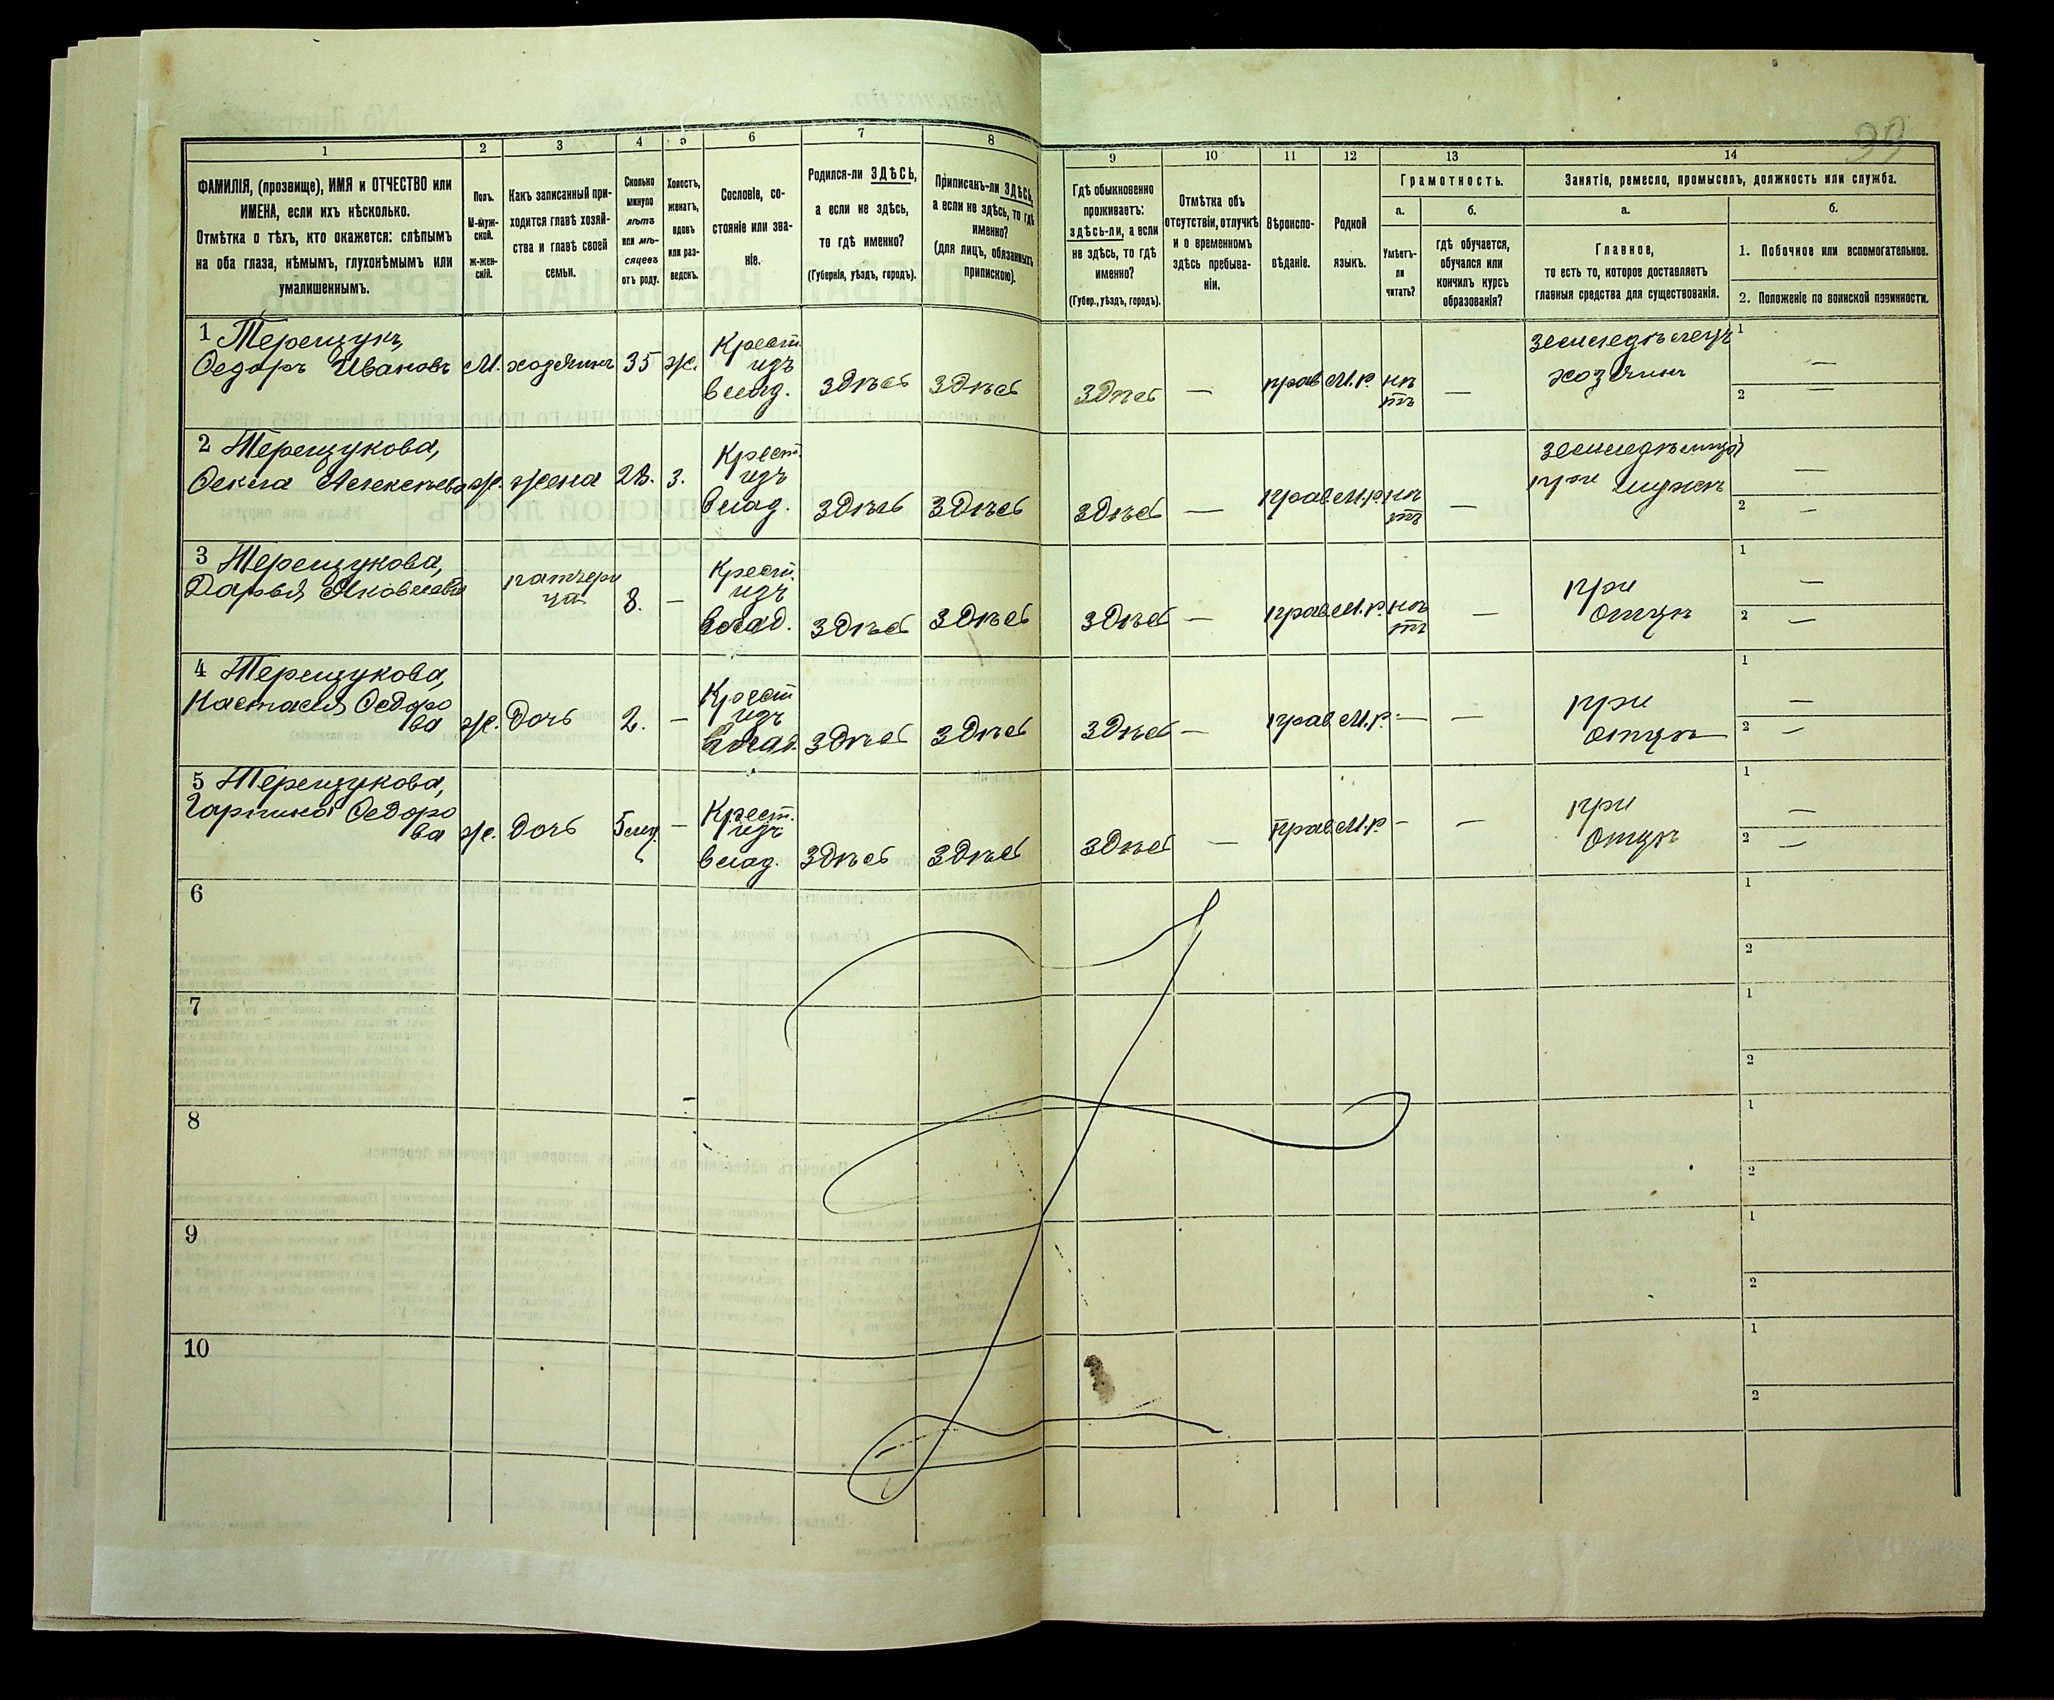 99
1 2 3 4 5 6 7 8 9 10 11 12 13 14
ФАМИЛІЯ, (прозвище), ИМЯ и ОТЧЕСТВО или
ИМЕНА, если ихъ нѣсколько.
Отмѣтка о тѣхъ, кто окажется: слѣпымъ
на оба глаза, нѣмымъ, глухонѣмымъ или
умалишеннымъ.
Полъ.
М-муж-
ской.
ж-жен-
скій.
Какъ записанный при-
ходится главѣ хозяй-
ства и главѣ своей
семьи.
Сколько
минуло
лѣтъ
или мѣ-
сяцевъ
отъ роду.
Холостъ,
женатъ,
вдовъ
или раз-
веденъ.
Сословіе, со-
стояніе или зва-
ніе.
Родился-ли ЗДѢСЬ,
а если не здѣсь,
то гдѣ именно?
(Губернія, уѣздъ, городъ).
Приписанъ-ли ЗДѢСЬ,
а если не здѣсь, то гдѣ
именно?
(для лицъ, обязанныхъ
припискою).
Гдѣ обыкновенно
проживаетъ:
здѣсь-ли, а если
не здѣсь, то гдѣ
именно?
(Губер., уѣздъ, городъ).
Отмѣтка объ
отсутствіи, отлучкѣ
и о временномъ
здѣсь пребыва-
ніи.
Вѣроиспо-
вѣданіе.
Родной
языкъ.
Грамотность.
а.
Умѣетъ-
ли
читать?
б.
гдѣ обучается,
обучался или
кончилъ курсъ
образованія?
Занятіе, ремесло, промыселъ, должность или служба.
а.
Главное,
то есть то, которое доставляетъ
главныя средства для существованія.
б.
1. Побочное или вспомогательное.
2. Положеніе по воинской повинности.
1 Терещукъ,
Ѳедоръ Ивановъ М. хозяинъ 35 ж. Крест. изъ влад. здѣсь здѣсь здѣсь — прав. М.р. нѣтъ — земледѣлецъ хозяинъ 1 — 2 —
2 Терещукова,
Ѳекла Алексѣева ж. жена 28. з. Крест. изъ влад. здѣсь здѣсь здѣсь — прав. М.р. нѣтъ — при мужѣ 1 — 2 —
3 Терещукова,
Дарья Яковлева патчерица 8. — Крест. изъ влад. здѣсь здѣсь здѣсь — прав. М.р. нѣтъ — при отцѣ 1 — 2 —
4 Терещукова,
Настасія Ѳедорова ж. дочь 2. — Крест. изъ влад. здѣсь здѣсь здѣсь — прав. М.р. — — при отцѣ 1 — 2 —
5 Терещукова,
Гарпина Ѳедорова ж. дочь 5 мѣц. — Крест. изъ влад. здѣсь здѣсь здѣсь — прав. М.р. — — при отцѣ 1 — 2 —
6 1 2
7 1 2
8 1 2
9 1 2
10 1 2